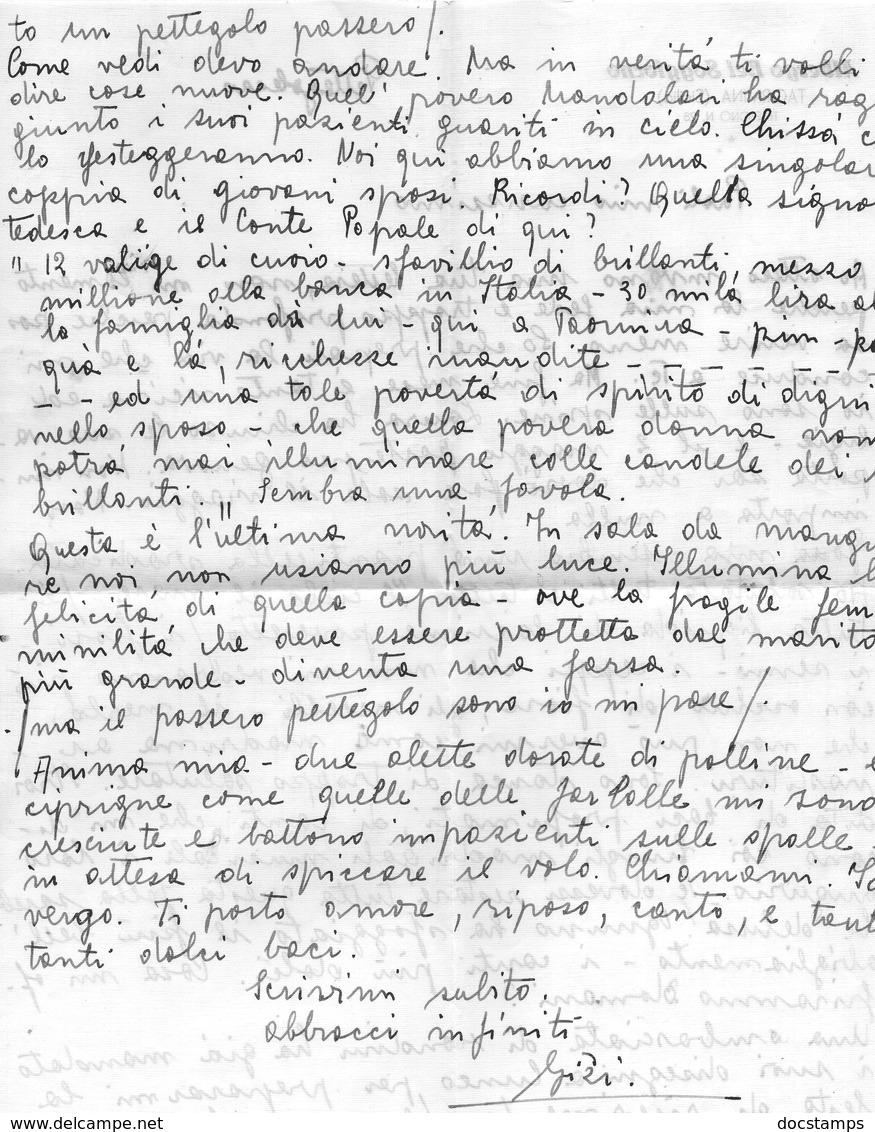 to un pettegolo passero /.
Come vedi devo andare. Ma in veritá ti volli
dire cose nuove. Quel povero Mandalari ha rag
giunto i suoi pazienti guariti in cielo. Chissá c
lo festeggeranno. Noi qui abbiamo una singolar
coppia di giovani sposi. Ricordi? Quella signo
tedesca e il Conte Papale di qui?
" 12 valige di cuoio - sfavillio di brillanti, mezzo
millione alla banca in Italia - 30 mila lira al
la famiglia dà lui - qui a Taormina - pum - pa
quà e lá, ricchesse inaudite _ _ _ _ _ _
_ _ ed una tale povertá di spirito di digni
nello sposo -, che quella povera donna non
potrá mai illuminare colle candele dei
brillanti. " Sembra una favola.
Questa è l'ultima novitá. In sala da mangia
re noi non usiamo più luce. Illumina l
felicitá di quella copia - ove la fragile fem
minilitá che deve essere prottetta dal marito
più grande - diventa una farsa.
/ ma il passero pettegolo sono io mi pare /.
Anima mia - due alette dorate di polline - e
ciprigne come quelle delle farfalle mi sono
cresciute e battono impazienti sulle spalle
in attesa di spiccare il volo. Chiamami. Io
vergo. Ti porto amore, riposo, canto, e tant
tanti dolci baci.
Scrivimi subito,
abbracci infiniti
Gizi.
docstamps
www.delcampe.net